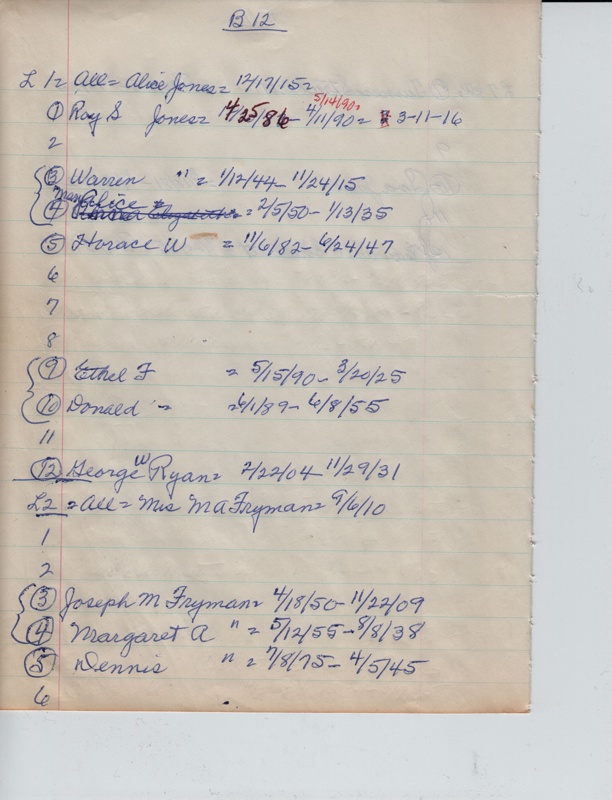 B 12
L 1 = All = Alice Jones = 12/17/15 =
5/14/90 =
1 Roy S Jones = 4/11/90 = 3-11-16
2
3 Warren " = 1/12/44 - 11/24/15
Mary Alice "
4 = 2/5/50 - 1/13/35
5 Horace W = 11/6/82 - 6/24/47
6
7
8
9 Ethel F = 5/15/90 - 3/20/25
10 Donald = 6/1/89 - 6/8/55
11
12 George W Ryan = 2/22/04 11/29/31
L2 = All = Mrs M A Fryman = 9/6/10
1
2
3 Joseph M Fryman = 4/18/50 - 11/22/09
4 Margaret A " = 5/12/55 - 8/8/38
5 Dennis " = 7/8/75 - 4/5/45
6